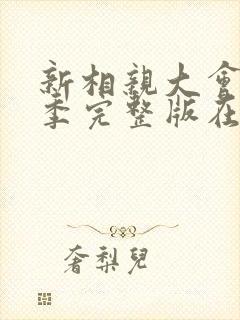 新相親大會
季完整版在
奢梨兒